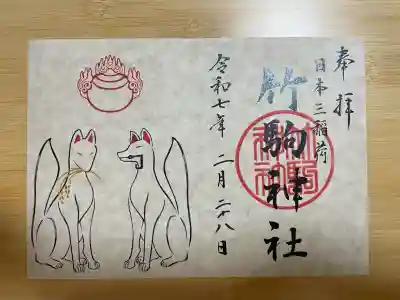 奉拝
日本三稲荷
竹駒神社
令和七年 二月 二十八日